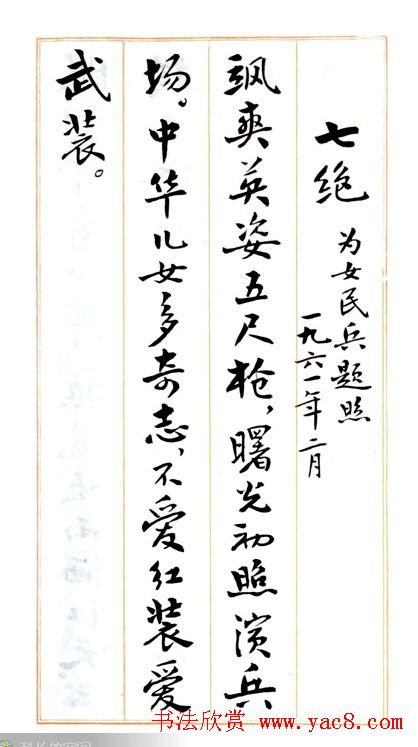 七绝
为女民兵题照
一九六一年二月
飒爽英姿五尺枪，曙光初照演兵
场。中华儿女多奇志，不爱红装爱
武装。
书法欣赏 www.yac8.com